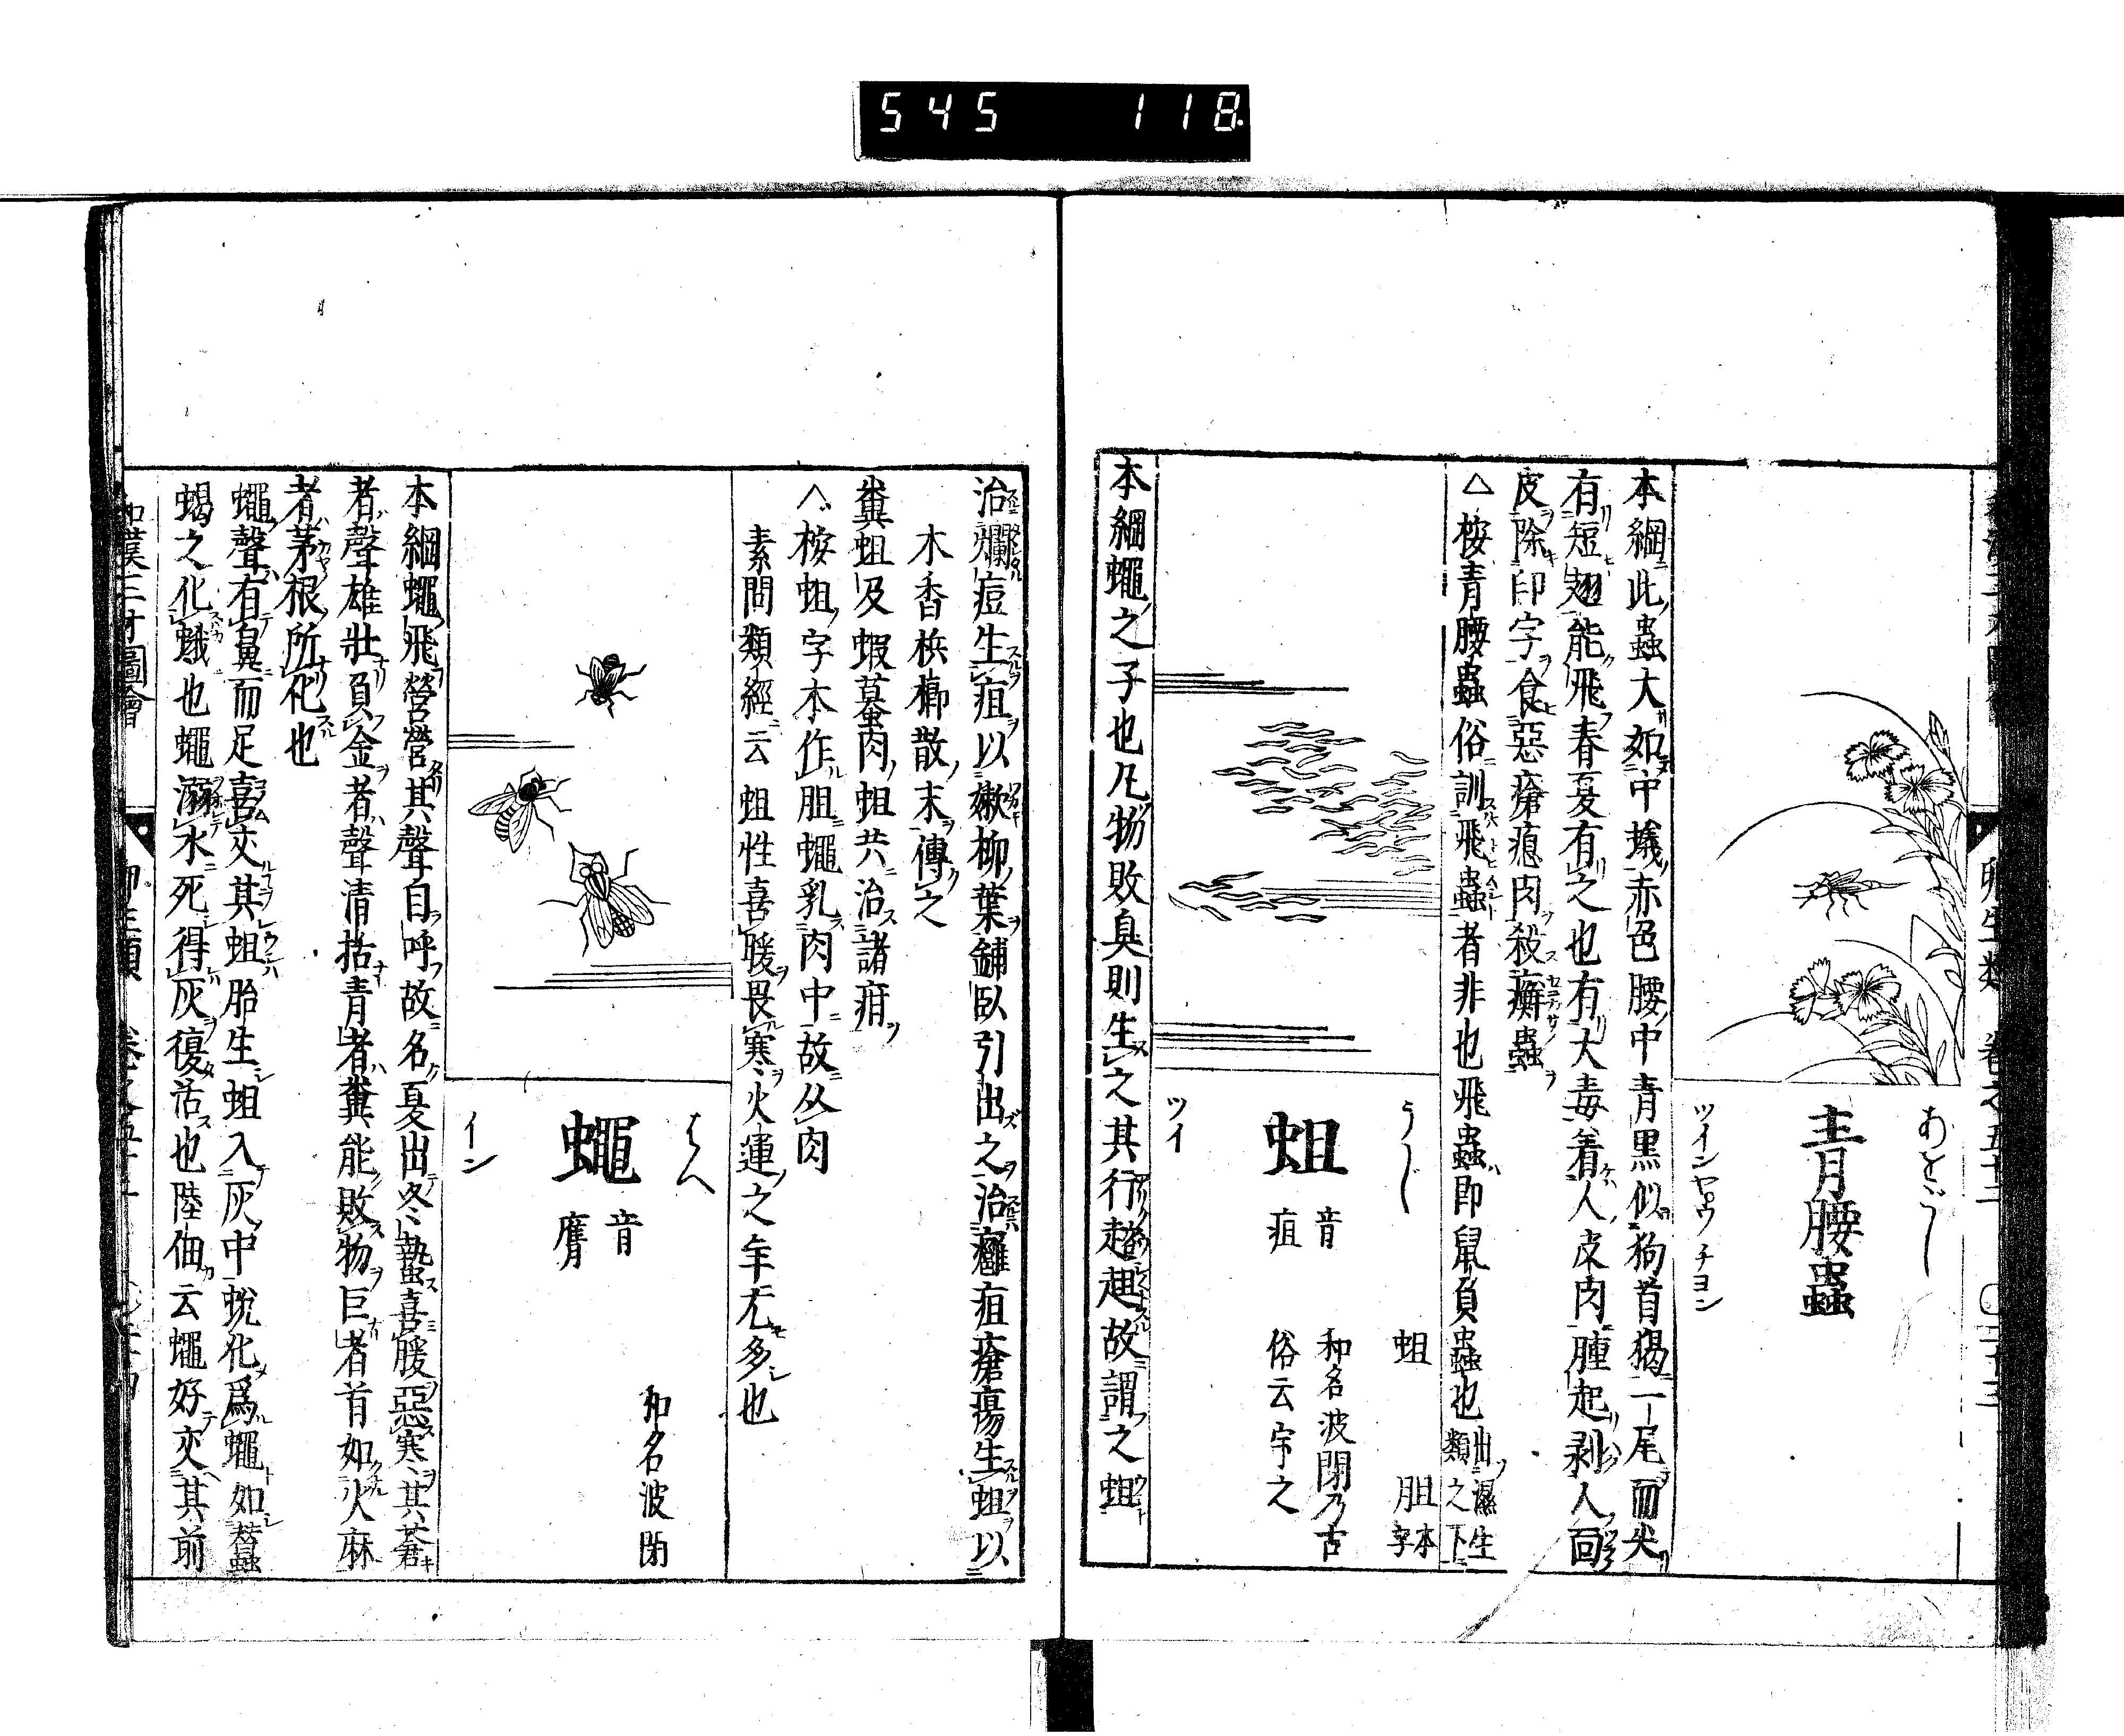 545 118
あをごし
青腰蟲
ツインヤ゜ウ チヨン
本綱此蟲大如中蟻赤色腰中青黒似狗首猲一尾而尖
有短翅能飛春夏有之也有大毒着人皮肉腫起剥人面
皮除印字食惡瘡瘜肉殺癬蟲
△按青腰蟲俗訓飛蟲者非也飛蟲即鼠負蟲也出濕生類之下
うじ
蛆
音疽
ツイ
蛆 胆本字
和名波閉乃古
俗云宇之
本綱蠅之子也凡物敗臭則生之其行趦趄故謂之蛆
治爛痘生疽以嫩柳葉鋪臥引出之治癰疽瘡瘍生蛆以
木香梹榔散末傅之
糞蛆及蝦蟇肉蛆共治諸疳
△按蛆字本作胆蠅乳肉中故从肉
素問類經云蛆性喜暖畏寒火運之年尤多也
はへ
蠅
音膺
イーン
和名波閉
本綱蠅飛營營其聲自呼故名夏出冬蟄喜暖惡寒其蒼
者聲雄壯負金者聲清括青者糞能敗物巨者首如火麻
者茅根所化也
蠅聲有自鼻而足喜交其蛆胎生蛆入灰中蛻化爲蠅如蠶
蝎之化蛾也蠅溺水死得灰復活也陸佃云蠅好交其前